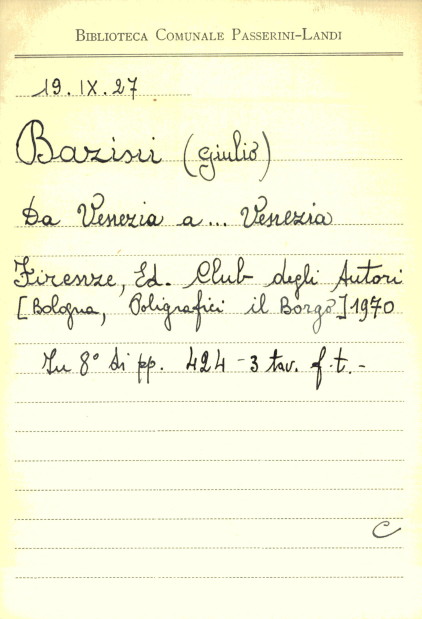 BIBLIOTECA COMUNALE PASSERINI-LANDI
19.IX.27
(Giulio)
Da Venezia a... Venezia
Firenze, Ed. Club degli Autori
[Bologna, Poligrafici il Borgo] 1970
In 8° di pp. 424 - 3 tav. f.t.-
C